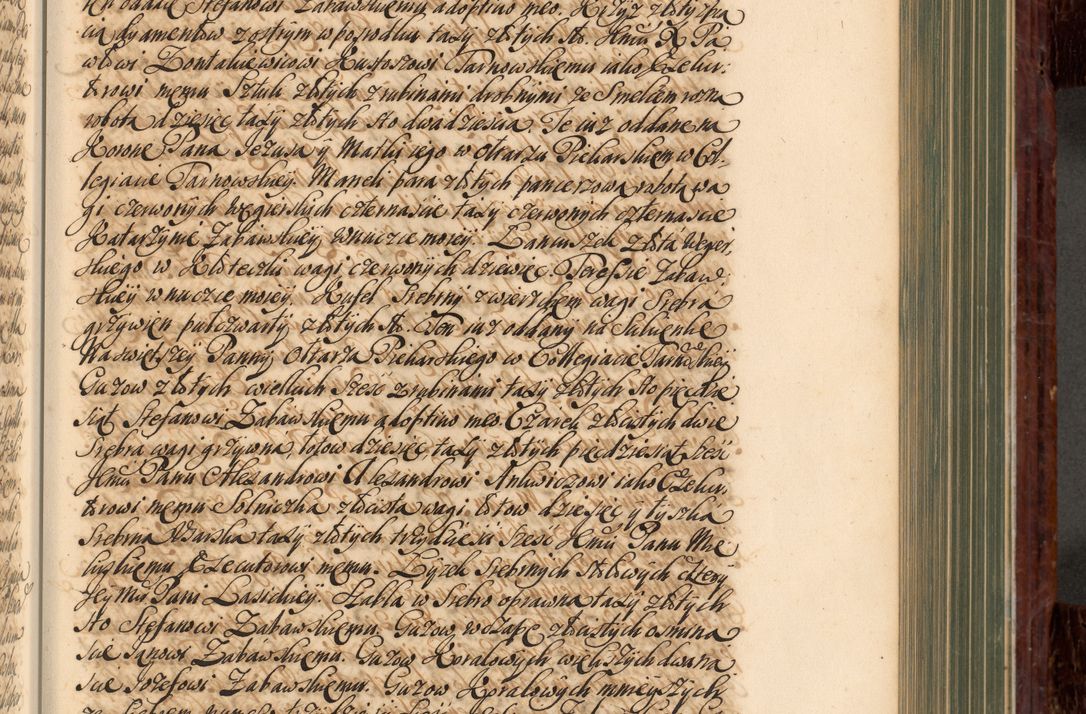 ten oddać Stefanowi Zabawskiemu adoptivo meo. Krzyż złoty z pa
cią dyamentow z ostrym w posrodku taxy złotych sto. Jmći X. Pa
włowi Zontakiewicowi Kustoszowi Tarnowskiemu iako Exeku:
torowi memu. Sztuk złotych z rubinami drobnymi ze Smelcem rozna
robota dziesięc taxy złotych sto dwadziescia. Te iuz oddane na
Korone Pana Jezusa y Matki iego w Ołtarzu Piekarskiem w Col.
legiacie Tarnowskiey. Maneli para złotych pancerzowa robota wa
gi czerwonych Węgierskich czternascie taxy czerwonych czternascie
Katarzynie Zabawskiey wnuczce moiey. Łancuszek złota Węger
skiego w Kosteczki wagi czerwonych dziewięc. Teressie Zabaw
skiey wnuczce moiey. Kufel Srebrny z wierzchem wagi Srebra
grzywien pułczwarty złotych sto. Ten iuz oddany na Sukienke
Naswiętszey Panny Ołtarza Piekarskiego w Collegiacie Tarnowskiey
Guzow złotych wielkich szesc z rubinami taxy złotych sto pięcdzie
siąt Stefanowi Zabawskiemu adoptivo meo. Czarek złocistych dwie
Srebra wagi grzywna, łotow dziesięc, taxy złotych pięcdziesiat szesc
Jmći Panu Alexandrowi Alexandrowi Ankwiczowi iako Exeku.
torowi memu Solniczka złocista wagi łotow dziesięc y łyszka
Srebrna Wzarska taxy złotych trzydziesci szesc Jmći Panu Mie
Exekutorowi memu. Łyzek Srebrnych Stołowych cztery
Jeymći Pani Łasickiey. Szabla w Srebro oprawna taxy złotych
sto Stefanowi Zabawskiemu. Guzow w czape złocistych osmina
scie Janowi Zabawskiemu. Guzow Koralowych większych dwana
scie Jozefowi Zabawskiemu. Guzow Koralowych mnieyszych